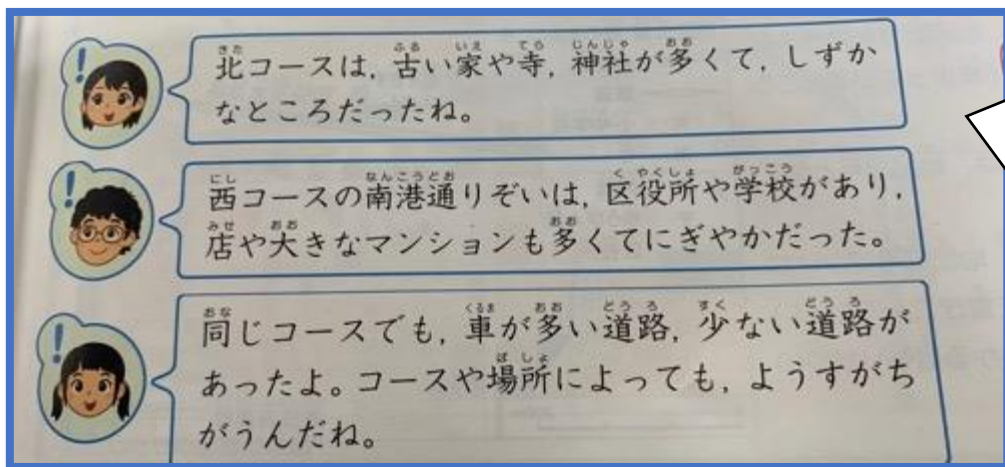 北コースは，古い家や寺，神社が多くて，しずか
なところだったね。
西コースの南港通りぞいは，区役所や学校があり，
店や大きなマンションも多くてにぎやかだった。
同じコースでも，車が多い道路，少ない道路が
あったよ。コースや場所によっても，ようすがち
がうんだね。